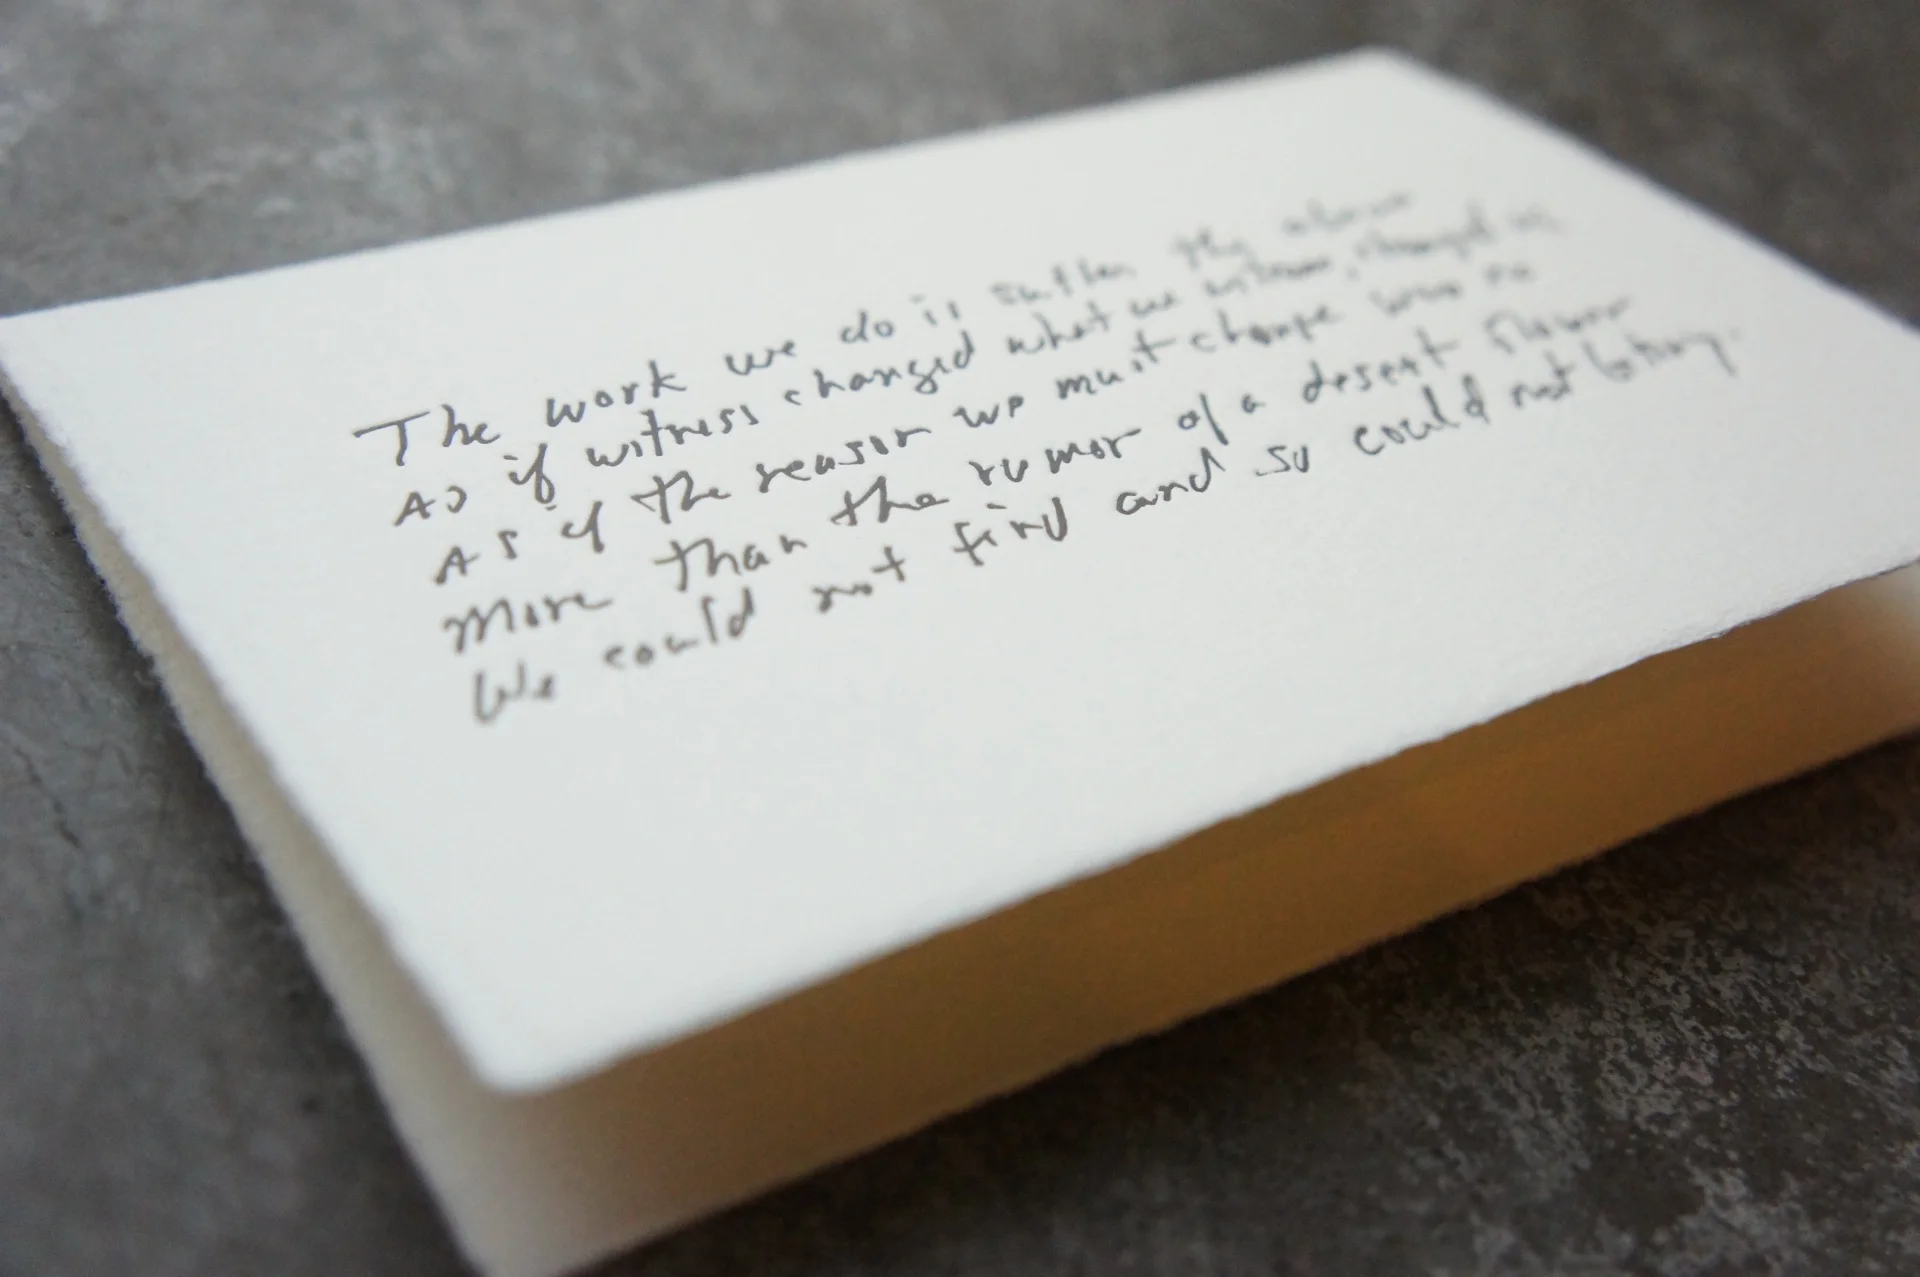 The work we do is
As if witness changed what we witness, changed us
As if the reason we must change was no
More than the rumor of a desert flower
We could not find and so could not